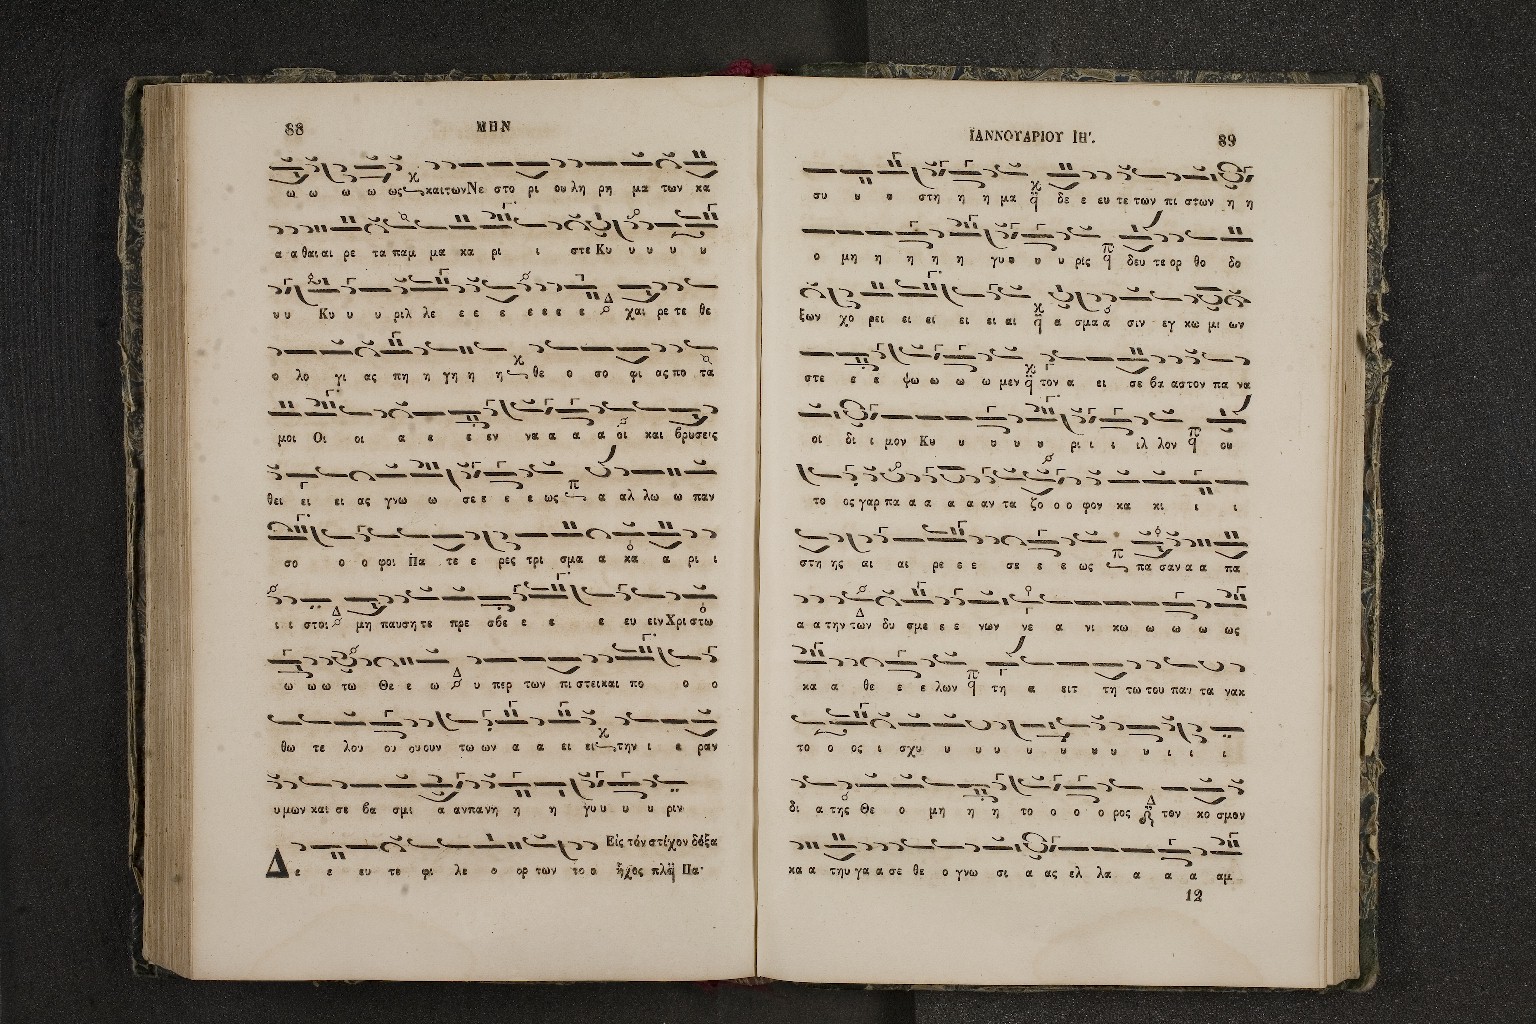 88
ΜΗΝ
ω ω ω ω ως και των Νε στο ρι ου λη ρη μα των κα
α α θαι αι ρε τα παμ μα κα ρι ι στε Κυ υ υ υ υ
υ υ Κυ υ υ ριλ λε ε ε ε ε ε ε ε χαι ρε τε θε
ο λο γι ας πη η γη η η θε ο σο φι ας πο τα
μοι Οι οι α ε ε εν να α α α οι και βρυσεις
θει ει ει ας γνω ω σε ε ε ε ε ως α αλ λω ω παν
σο ο ο φοι Πα τε ε ρες τρι σμα α κα α ρι ι
ι ι στοι μη παυση τε πρε σβε ε ε ε ευ ειν Χρι στω
ω ω ω τω Θε ε ω υ περ των πι στει και πο ο ο
θω τε λου ου ου ουν τω ων α α ει ει την ι ε ραν
υ μων και σε βα σμι α αν πα νη η η γυ υ υ υ ριν
Εἰς τὸν στίχον δόξα
Δ ε ε ευ τε φι λε ο ορ των το ο ἦχος πλ ᾳ Πα·
ΙΑΝΝΟΥΑΡΙΟΥ ΙΗ'.
89
συ υ υ στη η η μα δε ε ευ τε των πι στων η η
ο μη η η η η γυ υ υ υ ρις δευ τε ορ θο δο
ξων χο ρει ει ει ει ει αι α σμα α σιν εγ κω μι ων
στε ε ε ψω ω ω ω μεν τον α ει σε βα αστον πα να
οι δι ι μον Κυ υ υ υ υ ρι ι ι ιλ λον ου
το ος γαρ πα α α α α αν τα ζο ο ο φον κα κι ι ι
στη ης αι αι ρε ε ε σε ε ε ως πα σαν α α πα
α α την των δυ σμε ε ε νων νε α νι κω ω ω ω ως
κα α θε ε ε λων τη α ειτ τη τω του παν τα νακ
το ο ος ι σχυ υ υ υ υ υ υ υ υ ι ι ι
δι α της Θε ο μη η η το ο ο ο ρος τον κο σμον
κα α τηυ γα α σε θε ο γνω σι α ας ελ λα α α α αμ
12